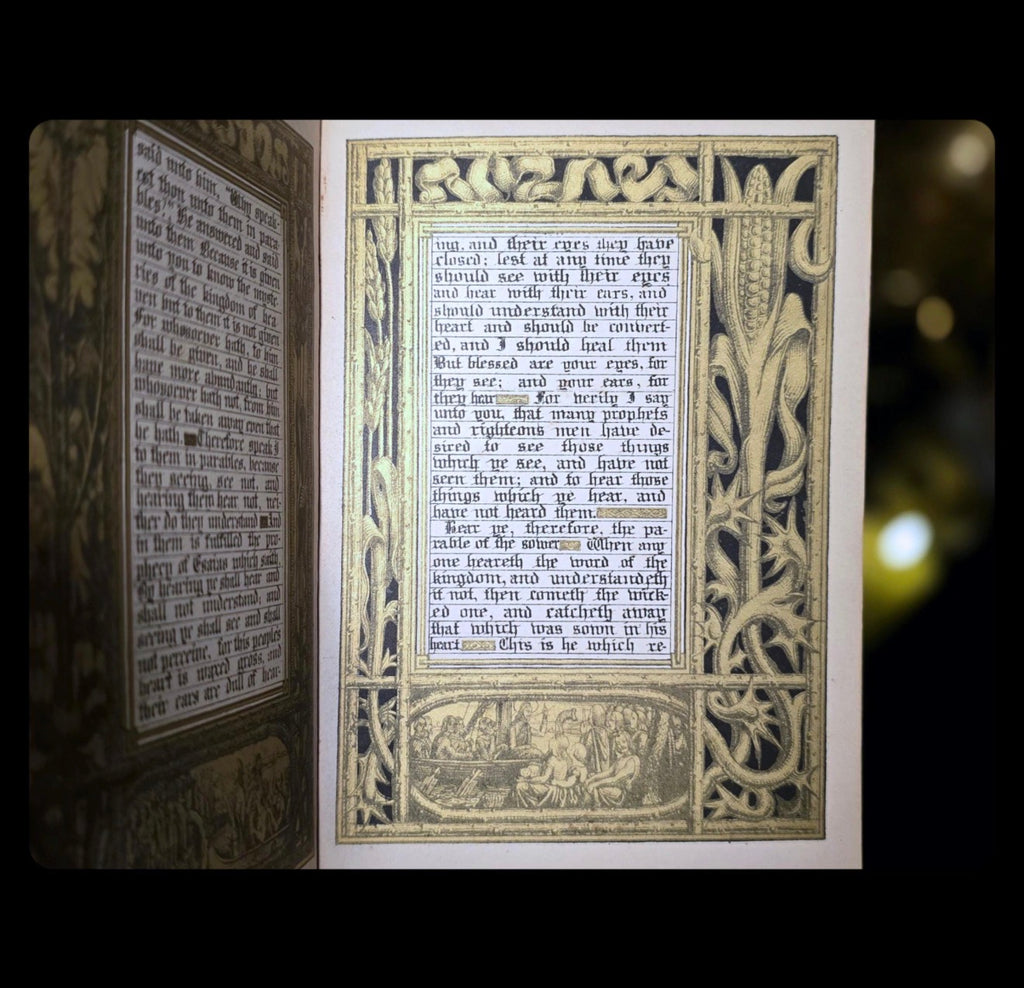 said unto him, "Why speak-
est thou unto them in para
bles?" He answered and said
unto them Because it is given
unto you to know the myste
ries of the kingdom of hea
ven but to them it is not given
For whosoever hath, to him
shall be given, and he shall
have more abundantly: but
whosoever hath not, from him
shall be taken away even that
he hath. Therefore speak I
to them in parables, because
they seeing, see not, and
hearing they hear not, nei-
ther do they understand And
in them is fulfilled the pro-
phecy of Esaias which saith,
By hearing ye shall hear and
shall not understand, and
seeing ye shall see and shall
not perceive, for this peoples
heart is waxed gross, and
their ears are dull of hear-
ing, and their eyes they have
closed; lest at any time they
should see with their eyes
and hear with their ears, and
should understand with their
heart and should be convert-
ed, and I should heal them
But blessed are your eyes, for
they see; and your ears, for
they hear For verily I say
unto you, that many prophets
and righteous men have de-
sired to see those things
which ye see, and have not
seen them; and to hear those
things which ye hear, and
have not heard them.
Hear ye, therefore, the pa-
rable of the sower When any
one heareth the word of the
kingdom, and understandeth
it not, then cometh the wick-
ed one, and catcheth away
that which was sown in his
heart This is he which re-